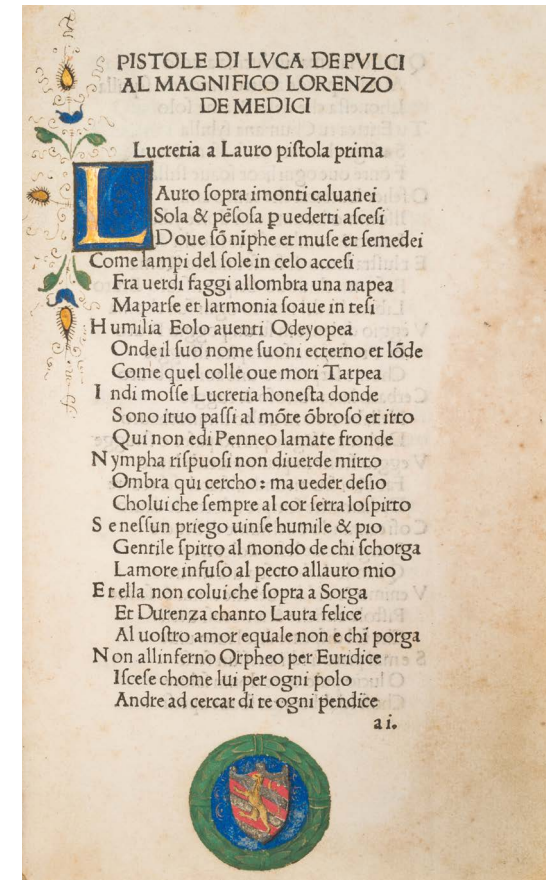 PISTOLE DI LVCA DE PVLCI
AL MAGNIFICO LORENZO
DE MEDICI
Lucretia a Lauro piſtola prima
LAuro ſopra imonti caluanei
Sola & pēſoſa ꝑ uederti aſceſi
Doue ſō nīphe et muſe et ſemedei
Come lampi del ſole in celo acceſi
Fra uerdi faggi allombra una napea
Maparſe et larmonia ſoaue in teſi
Humilia Eolo auenti Odeyopea
Onde il ſuo nome ſuoni ecterno et lōde
Come quel colle oue mori Tarpea
Indi moſſe Lucretia honeſta donde
Sono ituo paſſi al mōte ōbroſo et irto
Qui non edi Penneo lamate fronde
Nympha riſpuoſi non diuerde mirto
Ombra qui cercho: ma ueder deſio
Cholui che ſempre al cor ſerra loſpirto
Se neſſun priego uinſe humile & pio
Gentile ſpirto al mondo de chi ſchorga
Lamore infuſo al pecto allauro mio
Et ella non colui che ſopra a Sorga
Et Durenza chanto Laura felice
Al uoſtro amor equale non e chī porga
Non allinferno Orpheo per Euridice
Iſceſe chome lui per ogni polo
Andre ad cercar di te ogni pendice
a i.